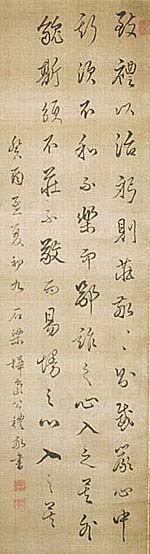 致禮以治躬則莊敬〻〻則威嚴心中
斯須不和不樂而鄙詐之心入之矣外
貌斯須不莊不敬而易慢之心入之矣
癸酉孟夏初九石梁樺島公禮敬書